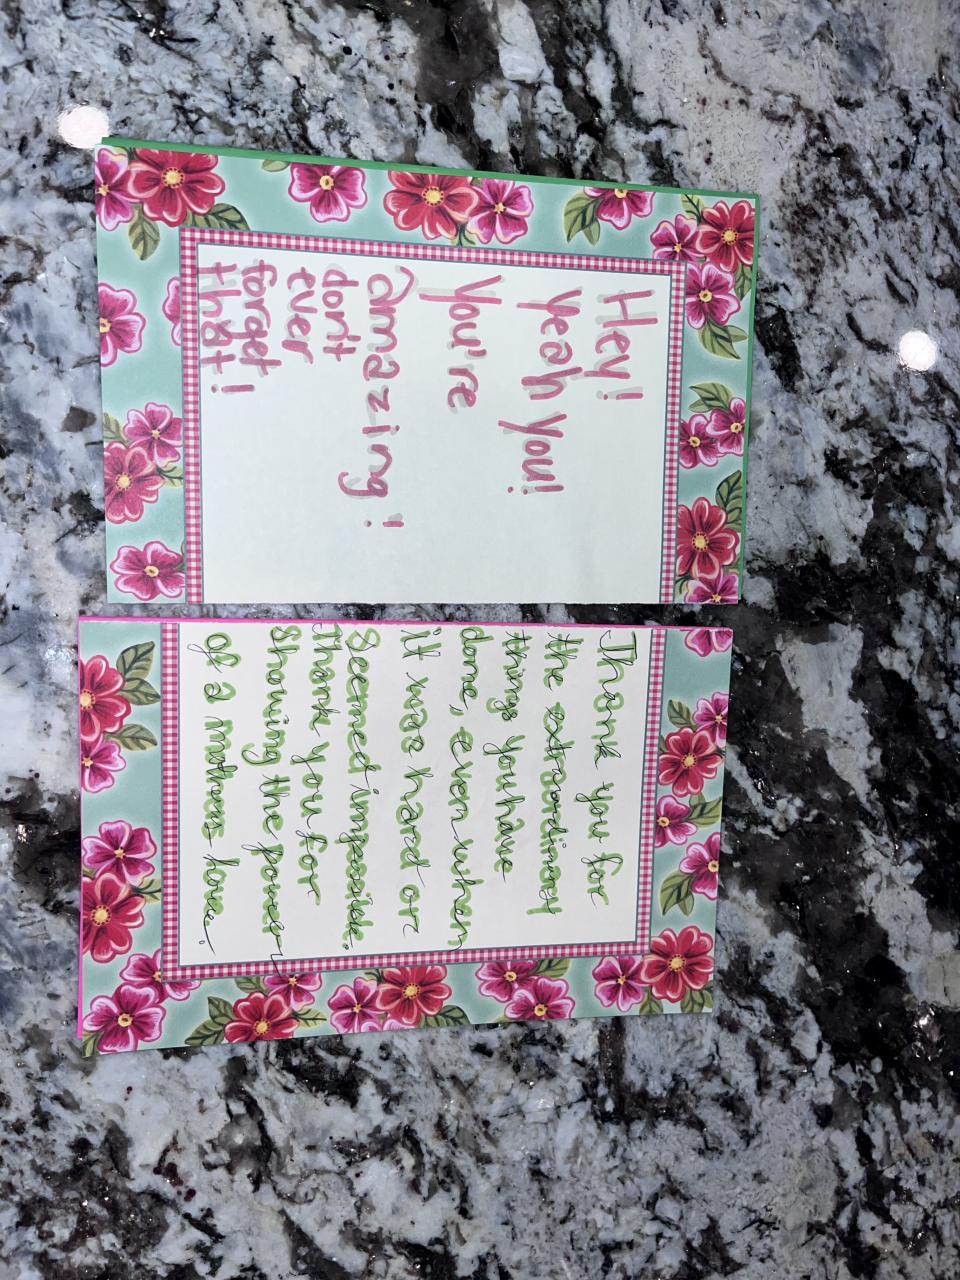 Hey!
Yeah You!
You're
amazing!
don't
ever
forget
that!
Thank you for
the extraordinary
things you have
done, even when
it was hard or
seemed impossible.
Thank you for
showing the power
of a mothers love.